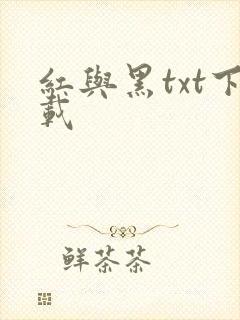 紅與黑txt下
載
鮮茶茶